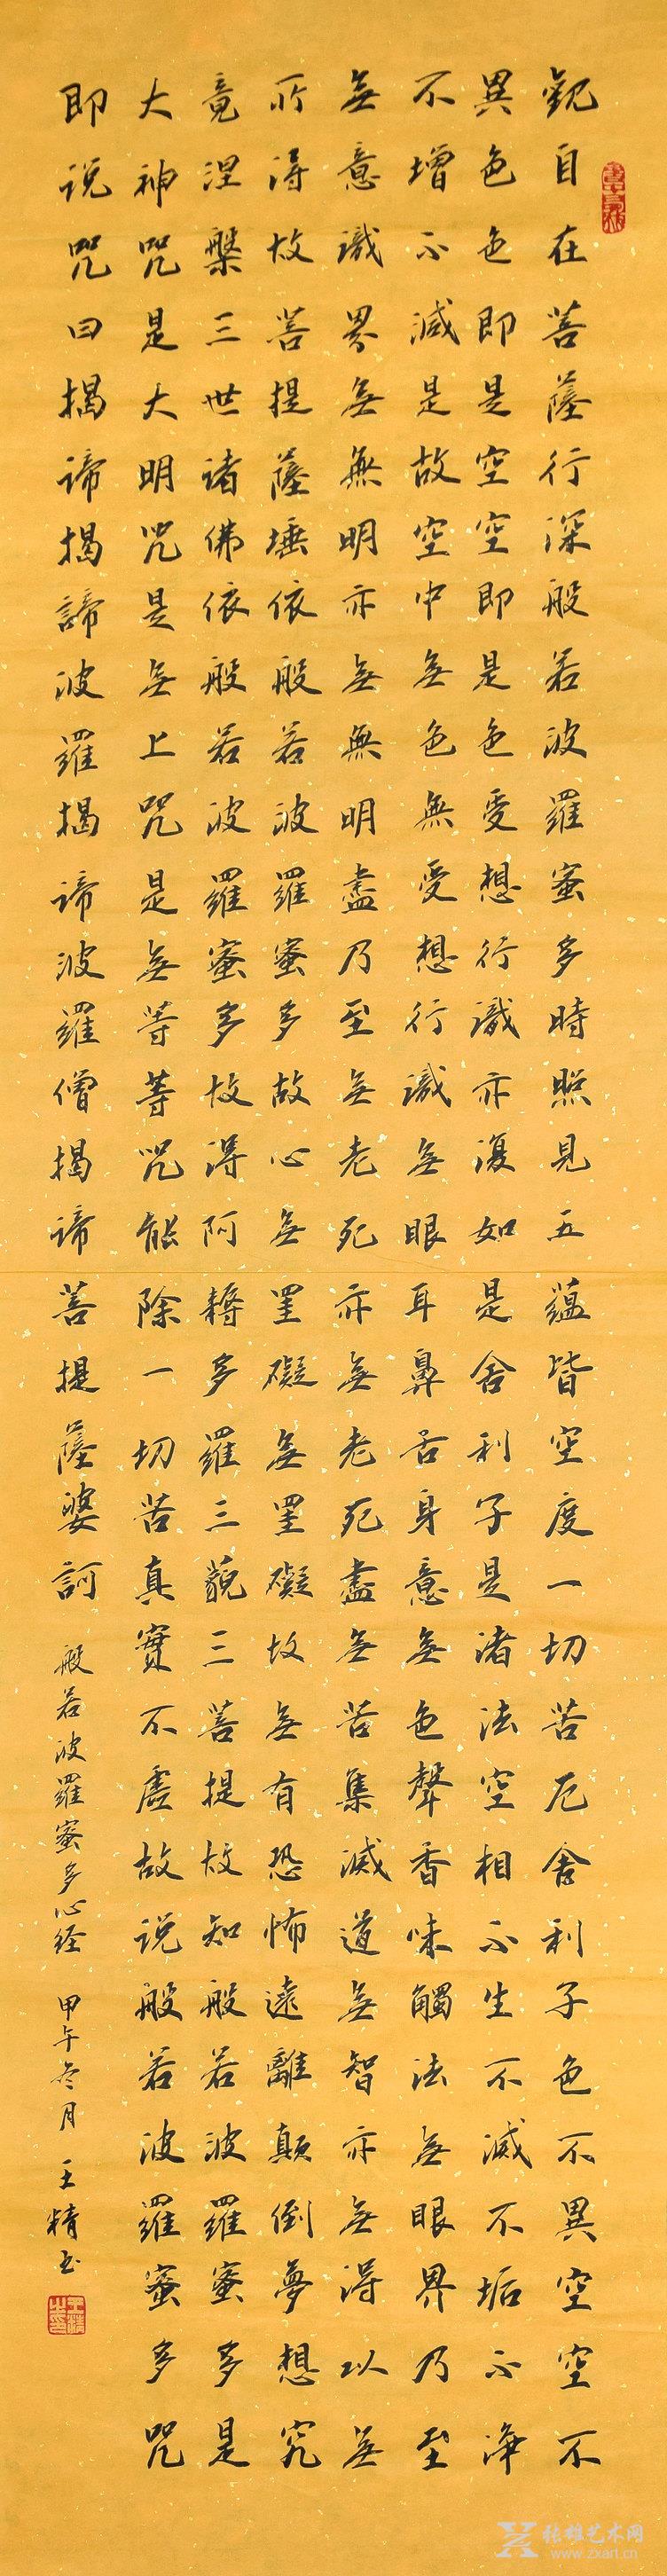 觀自在菩薩行深般若波羅蜜多時照見五蘊皆空度一切苦厄舍利子色不異空空不
異色色即是空空即是色受想行識亦復如是舍利子是諸法空相不生不滅不垢不淨
不增不減是故空中無色無受想行識無眼耳鼻舌身意無色聲香味觸法無眼界乃至
無意識界無無明亦無無明盡乃至無老死亦無老死盡無苦集滅道無智亦無得以無
所得故菩提薩埵依般若波羅蜜多故心無罣礙無罣礙故無有恐怖遠離顛倒夢想究
竟涅槃三世諸佛依般若波羅蜜多故得阿耨多羅三藐三菩提故知般若波羅蜜多是
大神咒是大明咒是無上咒是無等等咒能除一切苦真實不虛故說般若波羅蜜多咒
即說咒曰揭諦揭諦波羅揭諦波羅僧揭諦菩提薩婆訶 般若波羅蜜多心经 甲午冬月 王精书
张雄艺术网
www.zxart.cn